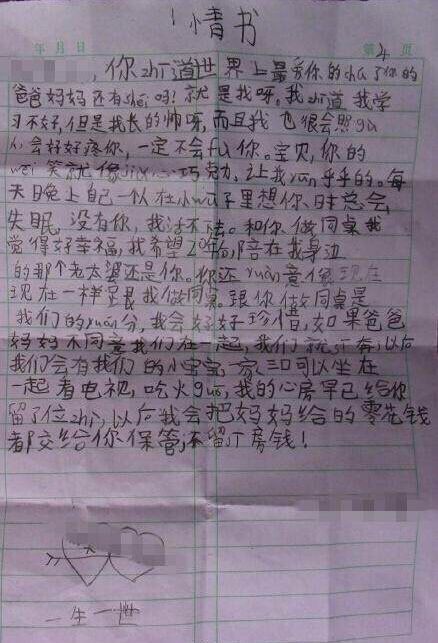 情书
年 月 日 第4页
,你zhī道世界上最爱你的chú了你的
爸爸妈妈还有shéi吗?就是我呀。我zhī道我学
习不好,但是我长的帅呀,而且我也很会照gu
人,会好好疼你,一定不会fu你。宝贝,你的
wēi笑就像 巧克力,让我 乎乎的。每
天晚上自己一个人在小 子里想你,日 总会
失眠,没有你,我活不 。和你做同桌我
觉得好幸福,我希望 陪在我身边
的那个老太婆还是你。你还yuàn意像现在
现在一样 是我做同桌。跟你做同桌是
我们的yuán分,我会好好珍惜,如果爸爸
妈妈不同意我们在一起,我们就 有,以后
我们会有我们的小宝宝,一家三口可以坐在
一起看电视,吃火guō,我的心房早已给你
留了位zhì,以后我会把妈妈给的零花钱
都交给你保管,不留 房钱!
一生一世